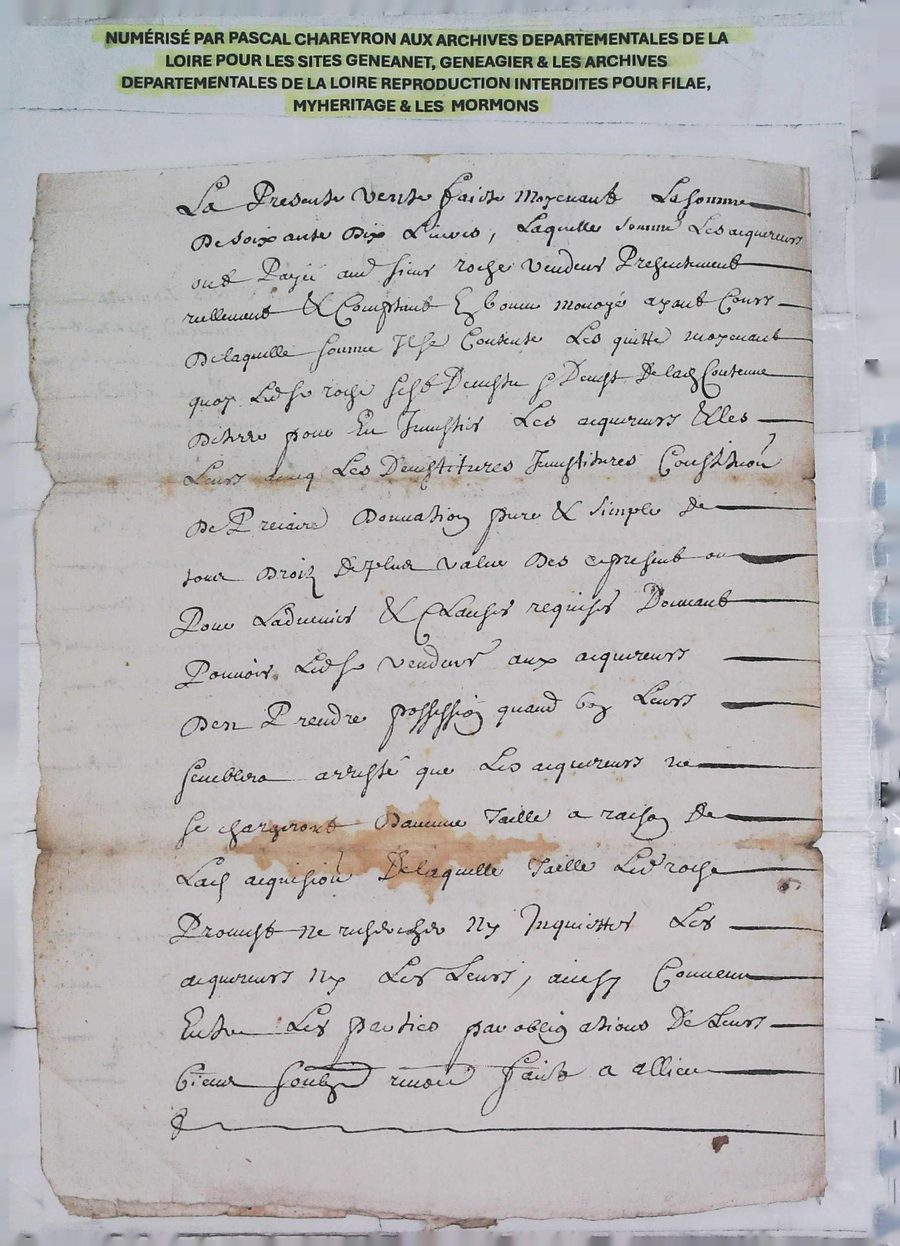 NUMÉRISÉ PAR PASCAL CHAREYRON AUX ARCHIVES DEPARTEMENTALES DE LA
LOIRE POUR LES SITES GENEANET, GENEAGIER & LES ARCHIVES
DEPARTEMENTALES DE LA LOIRE REPRODUCTION INTERDITES POUR FILAE,
MYHERITAGE & LES MORMONS
La Presente vente faicte moyenant La somme
De soixante Dix Livres, Laquelle somme Les acquereurs
ont Payée aud sieur roche vendeur Presentement
reellement & Comptant En bonne monoyé ayant Cours
De laquelle somme Il se Contente Les quitte moyenant
quoy Led sr roche sest Devestu & Devest De lad Contenue
De terre pour En Investir Les acquereurs &les
Leurs avecq Les Devestitures Investitures Constituon
De Precaire Donnation pure & simple de
tous Droiz De plus value Des apresent ou
Pour Ladvenir & Clauses requises Donnant
Pouvoir Led sr vendeur aux acquereurs
Den Prendre possession quand bon Leurs
semblera arresté que Les acquereurs ne
se chargeront Daucune Taille a raison de
Lad acquision De laquelle Taille Led roche
Promest ne rechercher Ny Inquietter Les
acquereurs Ny Les Leurs, ainsy Convenu
Entre Les parties par obligations De Leurs
biens soubz renon fait a allieu
&